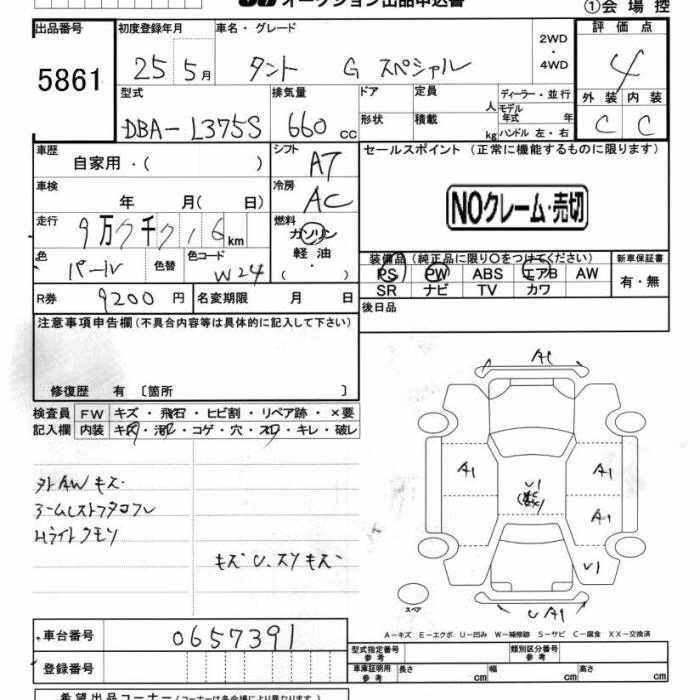 オークション出品申込書
①会場控
出品番号
5861
初度登録年月
25 5月
車名・グレード
タント G スペシャル
2WD
・
4WD
評価点
4
外装 内装
C C
型式
DBA-L375S
排気量
660 cc
ドア
定員
人
形状
積載
kg
ディーラー・並行
モデル年式 年
ハンドル 左・右
車歴
自家用・( )
シフト
AT
セールスポイント (正常に機能するものに限ります)
NOクレーム・売切
車検
年 月( 日)
冷房
AC
走行
km
燃料
ガソリン
軽油
( ・ )
色
パール
色替
色コード
W24
装備品(純正品に限り〇をつけてください)
PS PW ABS エアB AW
SR ナビ TV カワ
新車保証書
有・無
R券
9200 円
名変期限 月 日
後日品
注意事項申告欄(不具合内容等は具体的に記入して下さい)
修復歴 有 〔箇所 〕
検査員
記入欄
FW キズ・飛石・ヒビ割・リペア跡・×要
内装 キズ・汚レ・コゲ・穴・スレ・キレ・破レ
外AWキズ
Hライトクモリ
キズU.スリキズ
A1
A1
A1
U1
A1
U1
UA1
スペア
A-キズ E-エクボ U-凹み W-補修跡 S-サビ C-腐食 XX-交換済
車台番号
0657391
登録番号
型式指定番号
参考
類別区分番号
参考
車庫証明用
参考
長さ cm
幅 cm
高さ cm
希望出品コーナー(コーナーは各会場により異なります。)